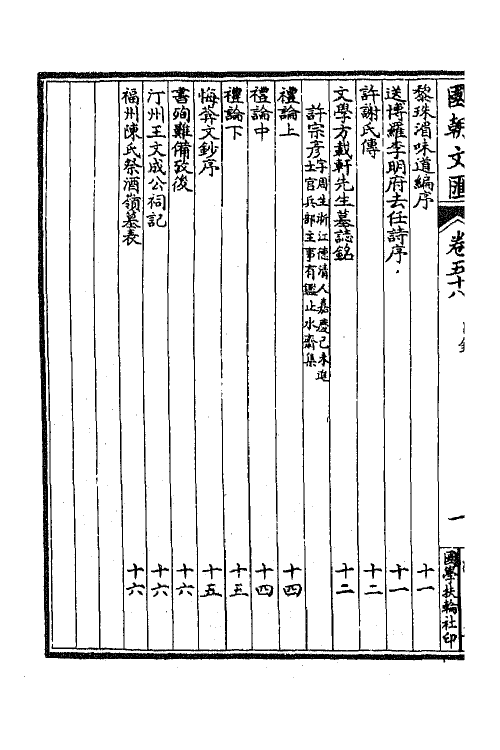 國朝文匯 卷五十八 一 國學扶輪社印
黎珠湄味道編序 十一
送博羅李明府去任詩序 十一
許謝氏傳 十二
文學方戴軒先生墓誌銘 十二
許宗彥 字周生浙江德清人嘉慶己未進士官兵部主事有鑑止水齋集
禮論上 十四
禮論中 十四
禮論下 十五
悔葊文鈔序 十五
書殉難備攷後 十六
汀州王文成公祠記 十六
福州陳氏祭酒嶺墓表 十六